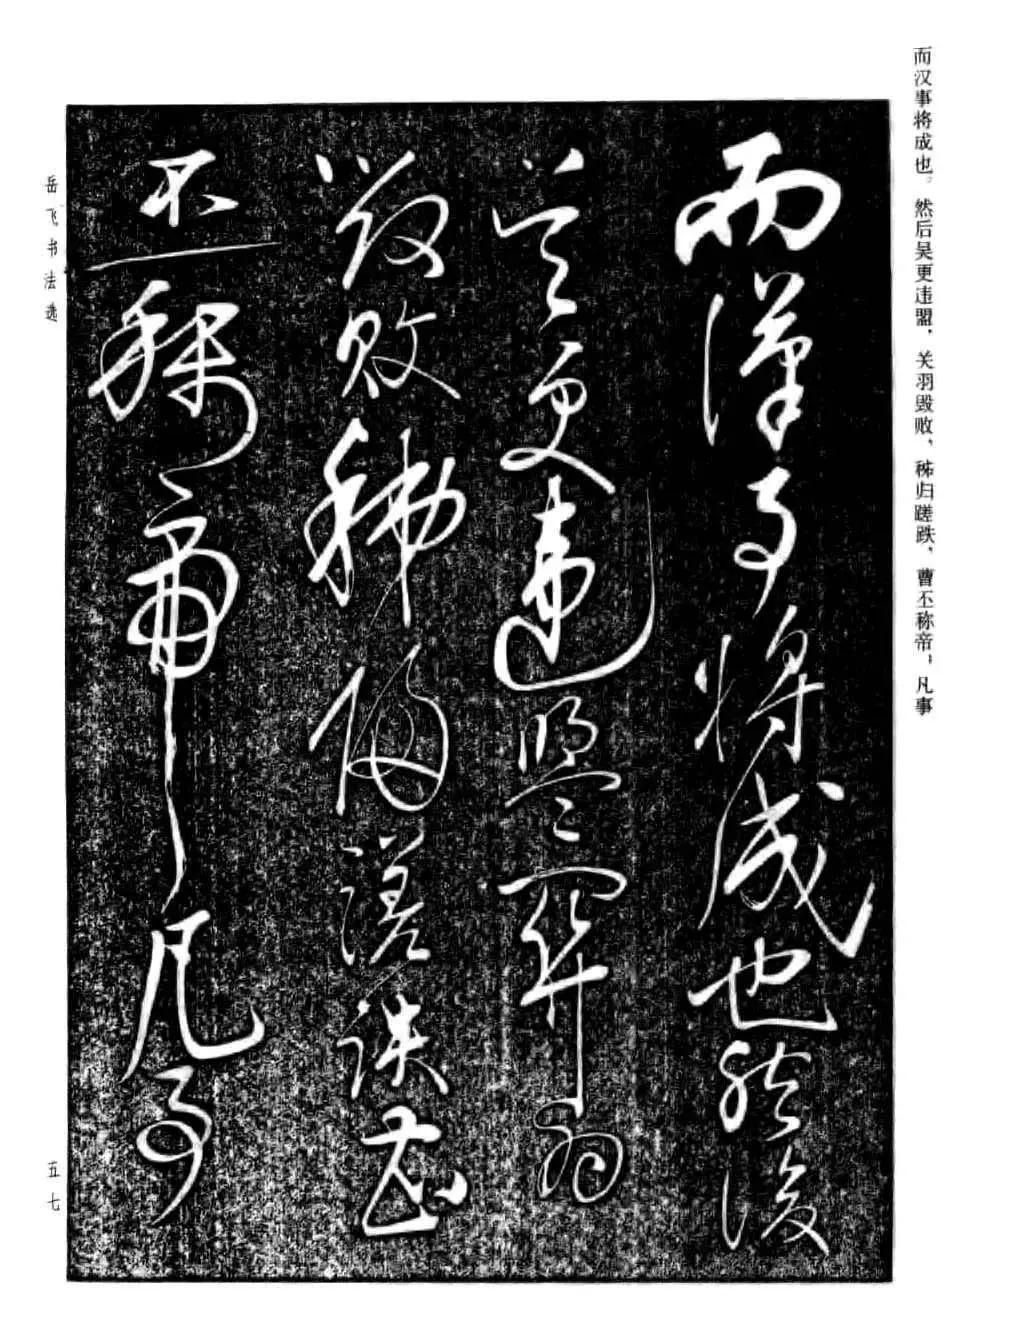 而汉事将成也。然后吴更违盟，关羽毁败，秭归蹉跌，曹丕称帝；凡事
而漢事将成也然後
吴更違盟關羽
毁敗秭歸蹉跌曹
丕稱帝凡事
岳飞书法选
五七